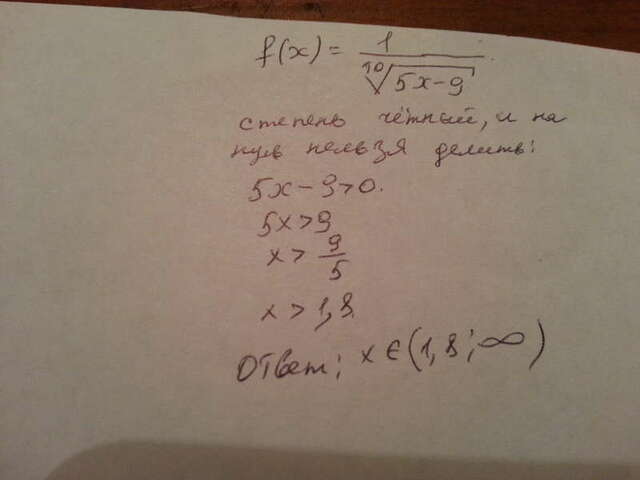 f(x) = 1 / ¹⁰√(5x-9)
степень чётный, и на
нуль нельзя делить:
5x-9>0.
5x>9
x > 9/5
x > 1,8
Ответ: x ∈ (1,8; ∞)